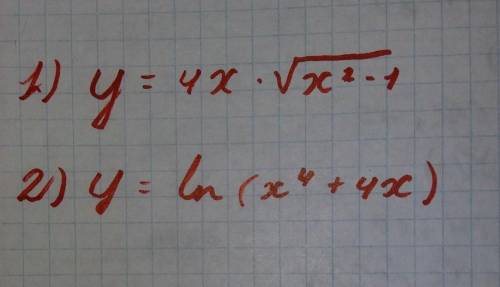 1) y = 4x · √(x² - 1)
2) y = ln (x⁴ + 4x)